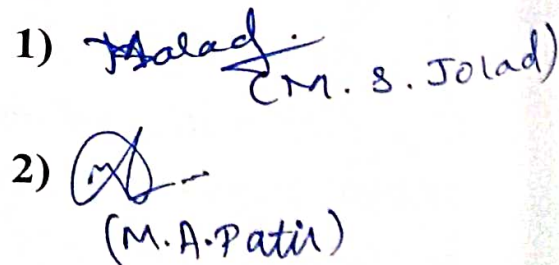 1)
(M. S. Jolad)
2)
(M.A.Patil)